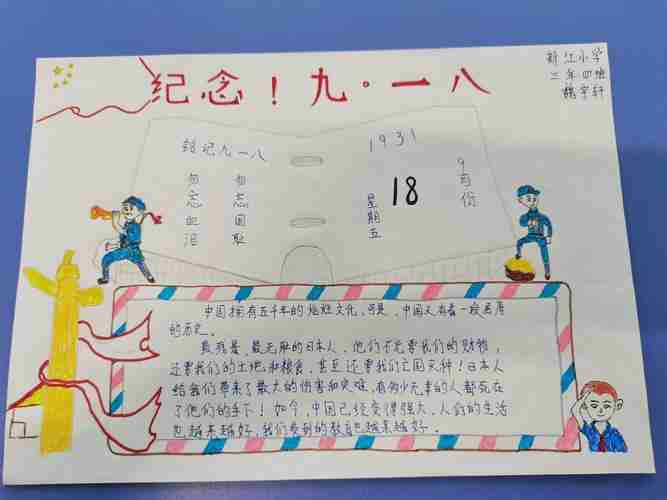 纪念！九·一八
新江小学
三年四班
魏宇轩
铭记九一八
勿忘国耻
勿忘血泪
1931
9月份
18
星期五
中国拥有五千年的灿烂文化，可是，中国又有着一段屈辱
的历史。
最残暴、最无耻的日本人，他们不光要我们的财物，
还要我们的土地和粮食，甚至还要我们亡国灭种！日本人
给我们带来了最大的伤害和灾难，有多少无辜的人都死在
了他们的手下！如今，中国已经变得强大，人们的生活
也越来越好，我们受到的教育也越来越好。